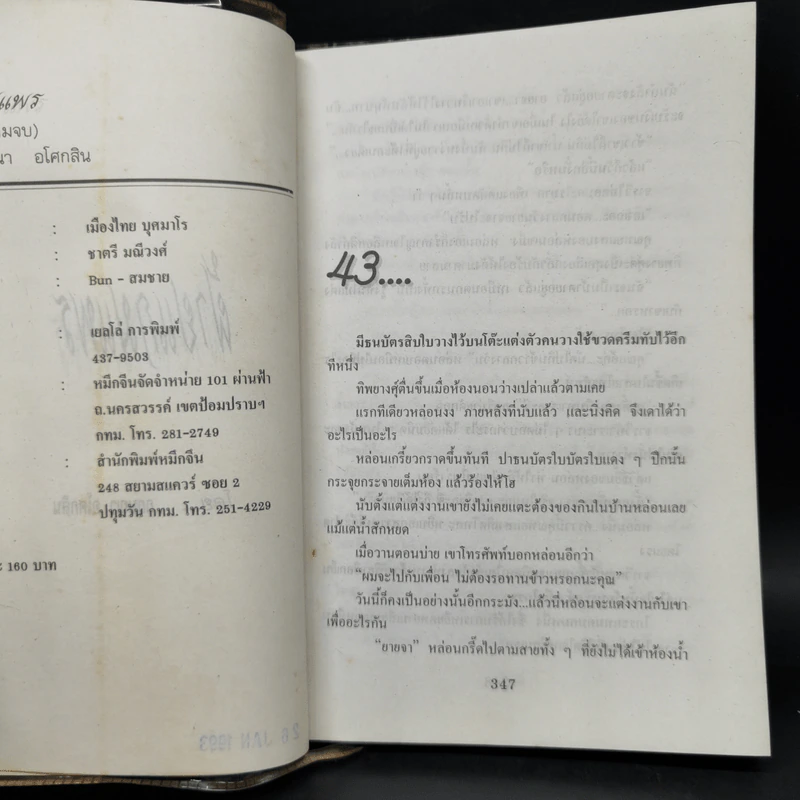 มจบ)
นา อโศกสิน
: เมืองไทย บุศมาโร
: ชาตรี มณีวงศ์
: Bun - สมชาย
: เยลโล่ การพิมพ์
437-9503
: หมึกจีนจัดจำหน่าย 101 ผ่านฟ้า
ถ.นครสวรรค์ เขตป้อมปราบฯ
กทม. โทร. 281-2749
: สำนักพิมพ์หมึกจีน
248 สยามสแควร์ ซอย 2
ปทุมวัน กทม. โทร. 251-4229
160 บาท
26 JAN 1993
43....
มีธนบัตรสิบใบวางไว้บนโต๊ะแต่งตัวคนวางใช้ขวดครีมทับไว้อีก
ทีหนึ่ง
ทิพยางศุ์ตื่นขึ้นเมื่อห้องนอนว่างเปล่าแล้วตามเคย
แรกทีเดียวหล่อนงง ภายหลังที่นับแล้ว และนิ่งคิด จึงเดาได้ว่า
อะไรเป็นอะไร
หล่อนเกรี้ยวกราดขึ้นทันที ปาธนบัตรใบบัตรใบแดง ๆ ปึกนั้น
กระจุยกระจายเต็มห้อง แล้วร้องไห้โฮ
นับตั้งแต่แต่งงานเขายังไม่เคยแตะต้องของกินในบ้านหล่อนเลย
แม้แต่น้ำสักหยด
เมื่อวานตอนบ่าย เขาโทรศัพท์บอกหล่อนอีกว่า
“ผมจะไปกับเพื่อน ไม่ต้องรอทานข้าวหรอกนะคุณ”
วันนี้ก็คงเป็นอย่างนั้นอีกกระมัง...แล้วนี่หล่อนจะแต่งงานกับเขา
เพื่ออะไรกัน
“ยายจา” หล่อนกรี๊ดไปตามสายทั้ง ๆ ที่ยังไม่ได้เข้าห้องน้ำ
347